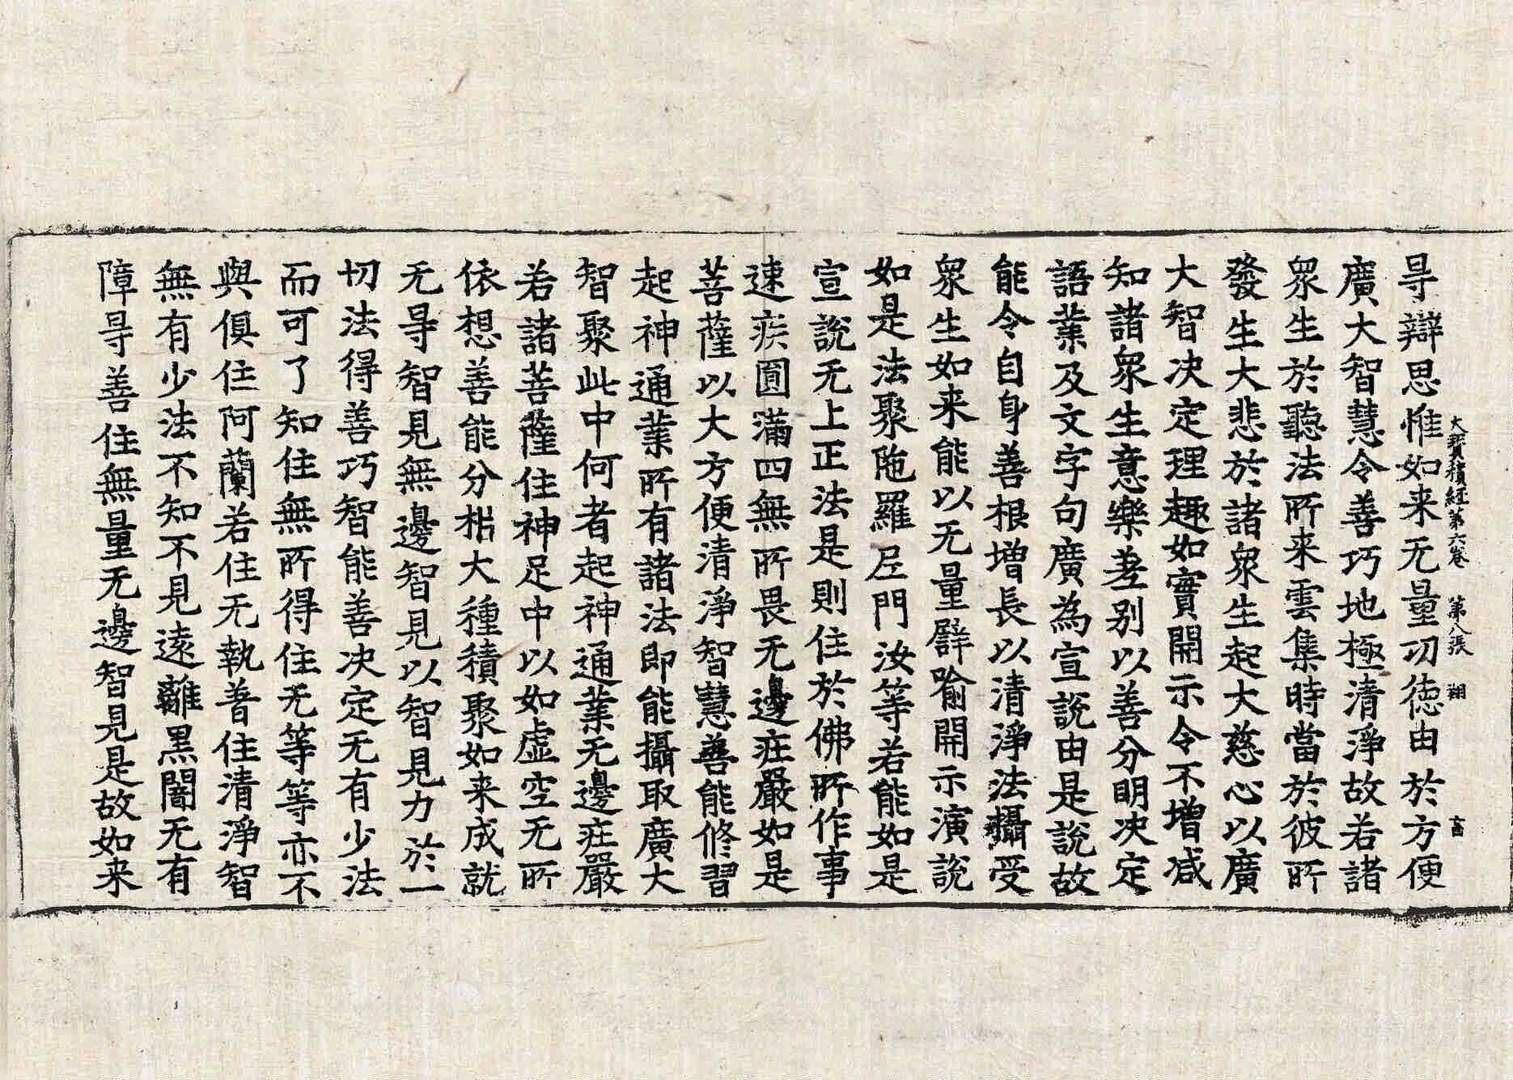 大寶積經第六卷　第八張　翔　富
㝵辯思惟如来无量功徳由於方便
廣大智慧令善巧地極清淨故若諸
衆生於聽法所来雲集時當於彼所
發生大悲於諸衆生起大慈心以廣
大智决定理趣如實開示令不增减
知諸衆生意樂差别以善分明决定
語業及文字句廣為宣說由是說故
能令自身善根增長以清淨法攝受
衆生如来能以无量譬喻開示演說
如是法聚陁羅尼門汝等若能如是
宣說无上正法是則住於佛所作事
速疾圓滿四無所畏无邊庄嚴如是
菩薩以大方便清淨智慧善能修習
起神通業所有諸法即能攝取廣大
智聚此中何者起神通業无邊庄嚴
若諸菩薩住神足中以如虛空无所
依想善能分析大種積聚如来成就
无㝵智見無邊智見以智見力於一
切法得善巧智能善决定无有少法
而可了知住無所得住无等等亦不
與俱住阿蘭若住无執著住清淨智
無有少法不知不見遠離黑闇无有
障㝵善住無量无邊智見是故如来